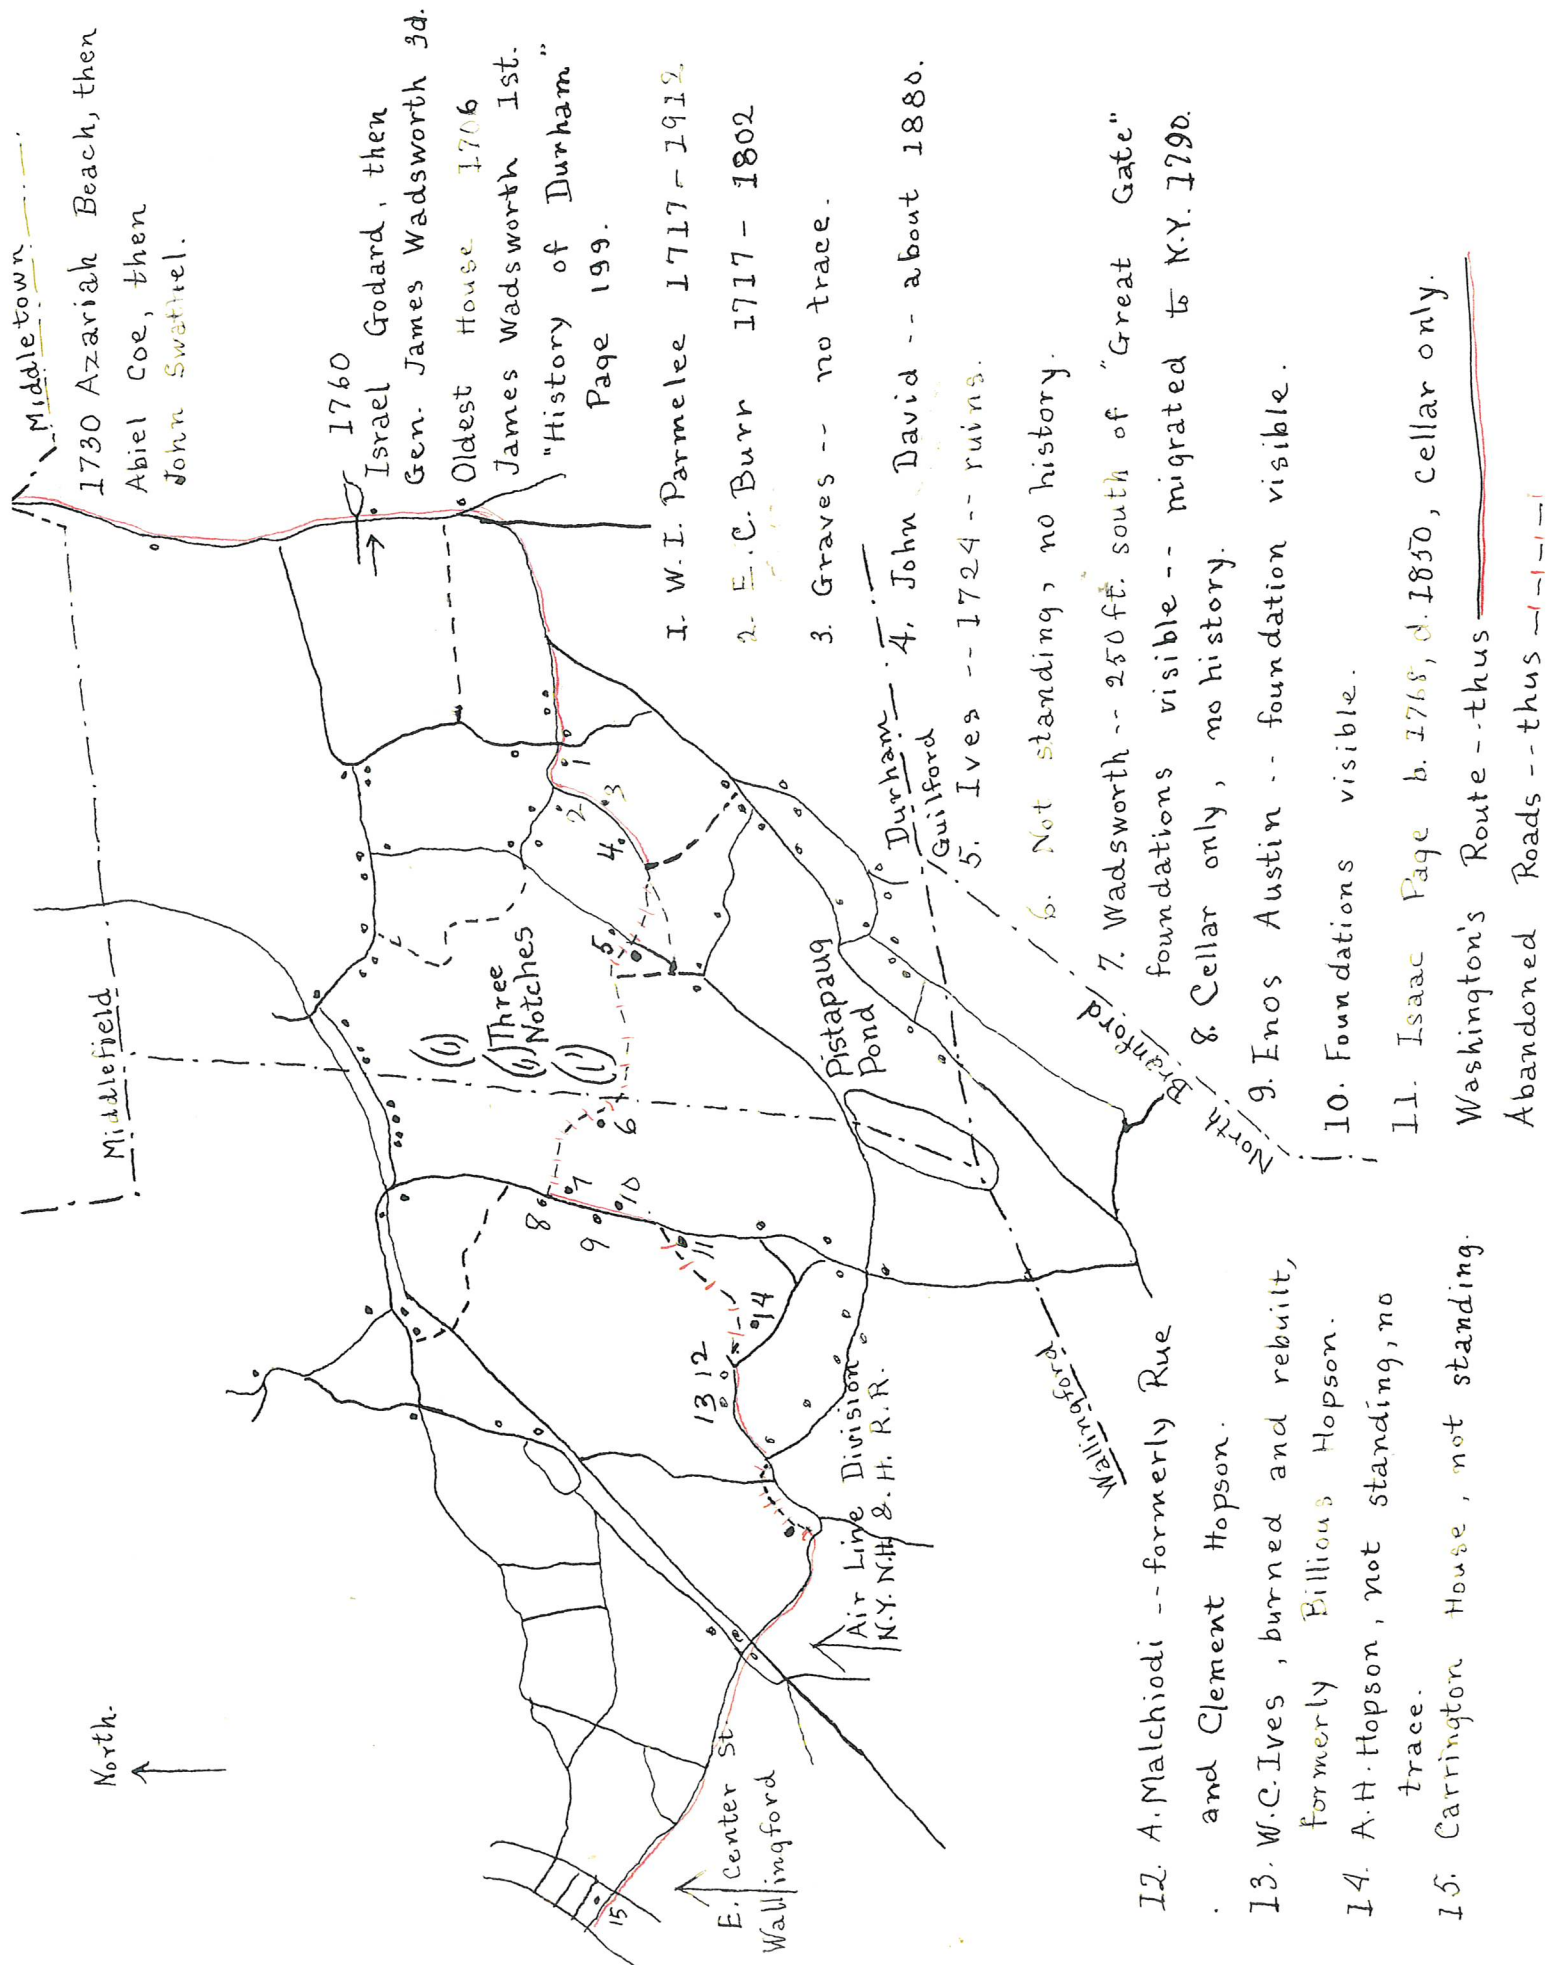 North.
Middletown
1730 Azariah Beach, then
Abiel Coe, then
John Swathel.
1760
Israel Godard, then
Gen. James Wadsworth 3d.
Oldest House 1706
James Wadsworth 1st.
"History of Durham"
Page 199.
Middlefield
Three
Notches
Pistapaug
Pond
Durham
Guilford
North Branford
Wallingford
Air Line Division
N.Y. N.H. & H. R.R.
E. Center St.
Wallingford
1
2
3
4
5
6
7
8
9
10
11
12
13
14
15
1. W.I. Parmelee 1717-1912
2. E.C. Burr 1717-1802
3. Graves -- no trace.
4. John David -- about 1880.
5. Ives -- 1724 -- ruins.
6. Not standing, no history.
7. Wadsworth -- 250 ft. south of "Great Gate"
foundations visible -- migrated to N.Y. 1790.
8. Cellar only, no history.
9. Enos Austin -- foundation visible.
10. Foundations visible.
11. Isaac Page b. 1768, d. 1850, cellar only.
Washington's Route -- thus
Abandoned Roads -- thus
12. A. Malchiodi -- formerly Rue
and Clement Hopson.
13. W.C. Ives, burned and rebuilt,
formerly Billious Hopson.
14. A.H. Hopson, not standing, no
trace.
15. Carrington House, not standing.